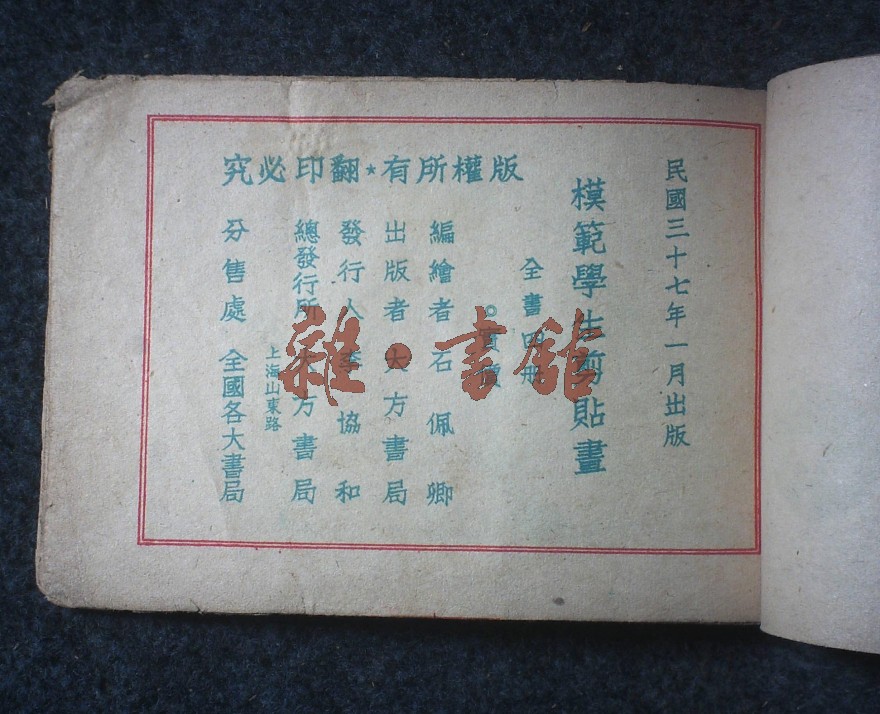 民國三十七年一月出版
模範學生剪貼畫
全書四册
實價
版權所有★翻印必究
編繪者 石佩卿
出版者 大方書局
發行人 李協和
總發行所 大方書局
上海山東路
分售處 全國各大書局
雜·書館